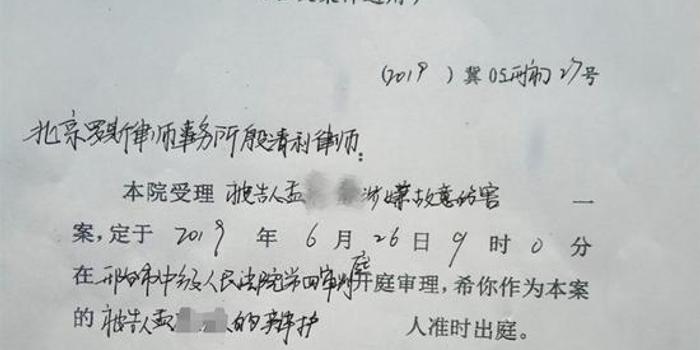 （2019）冀05刑初27号
北京罗斯律师事务所殷清利律师：
本院受理 被告人孟 涉嫌故意伤害 一
案，定于 2019 年 6 月 26 日 9 时 0 分
在 邢台市中级人民法院第四审判庭 开庭审理，希你作为本案
的 被告人孟 的辩护 人准时出庭。